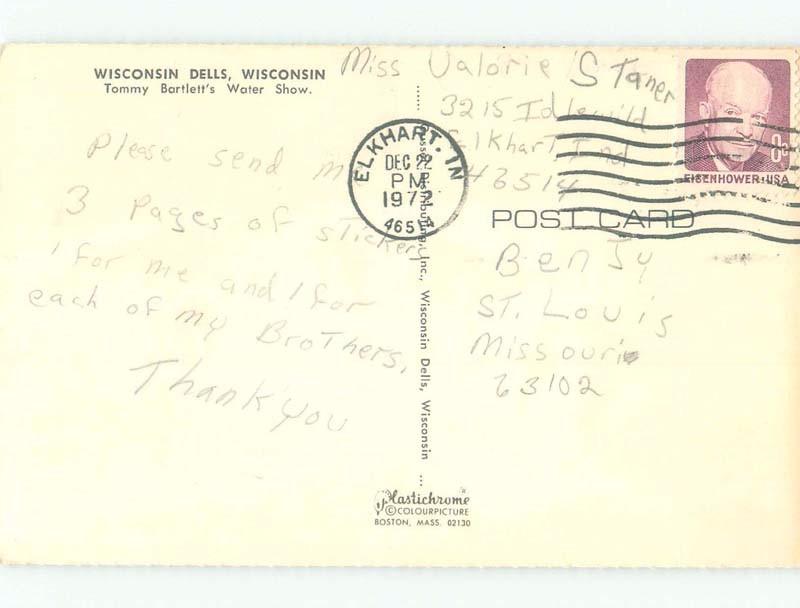 WISCONSIN DELLS, WISCONSIN
Tommy Bartlett's Water Show.
Please send me
3 Pages of stickers
1 for me and 1 for
each of my BroThers,
Thank you
Miss Valorie STaner
3215 Idlewild
ElkharT Ind
46514
ELKHART. IN
DEC 22
PM
1972
46514
EISENHOWER·USA
POST CARD
Ben Jy
ST. Louis
Missouri
63102
Distributing, Inc., Wisconsin Dells, Wisconsin
Plastichrome
©COLOURPICTURE
BOSTON, MASS. 02130